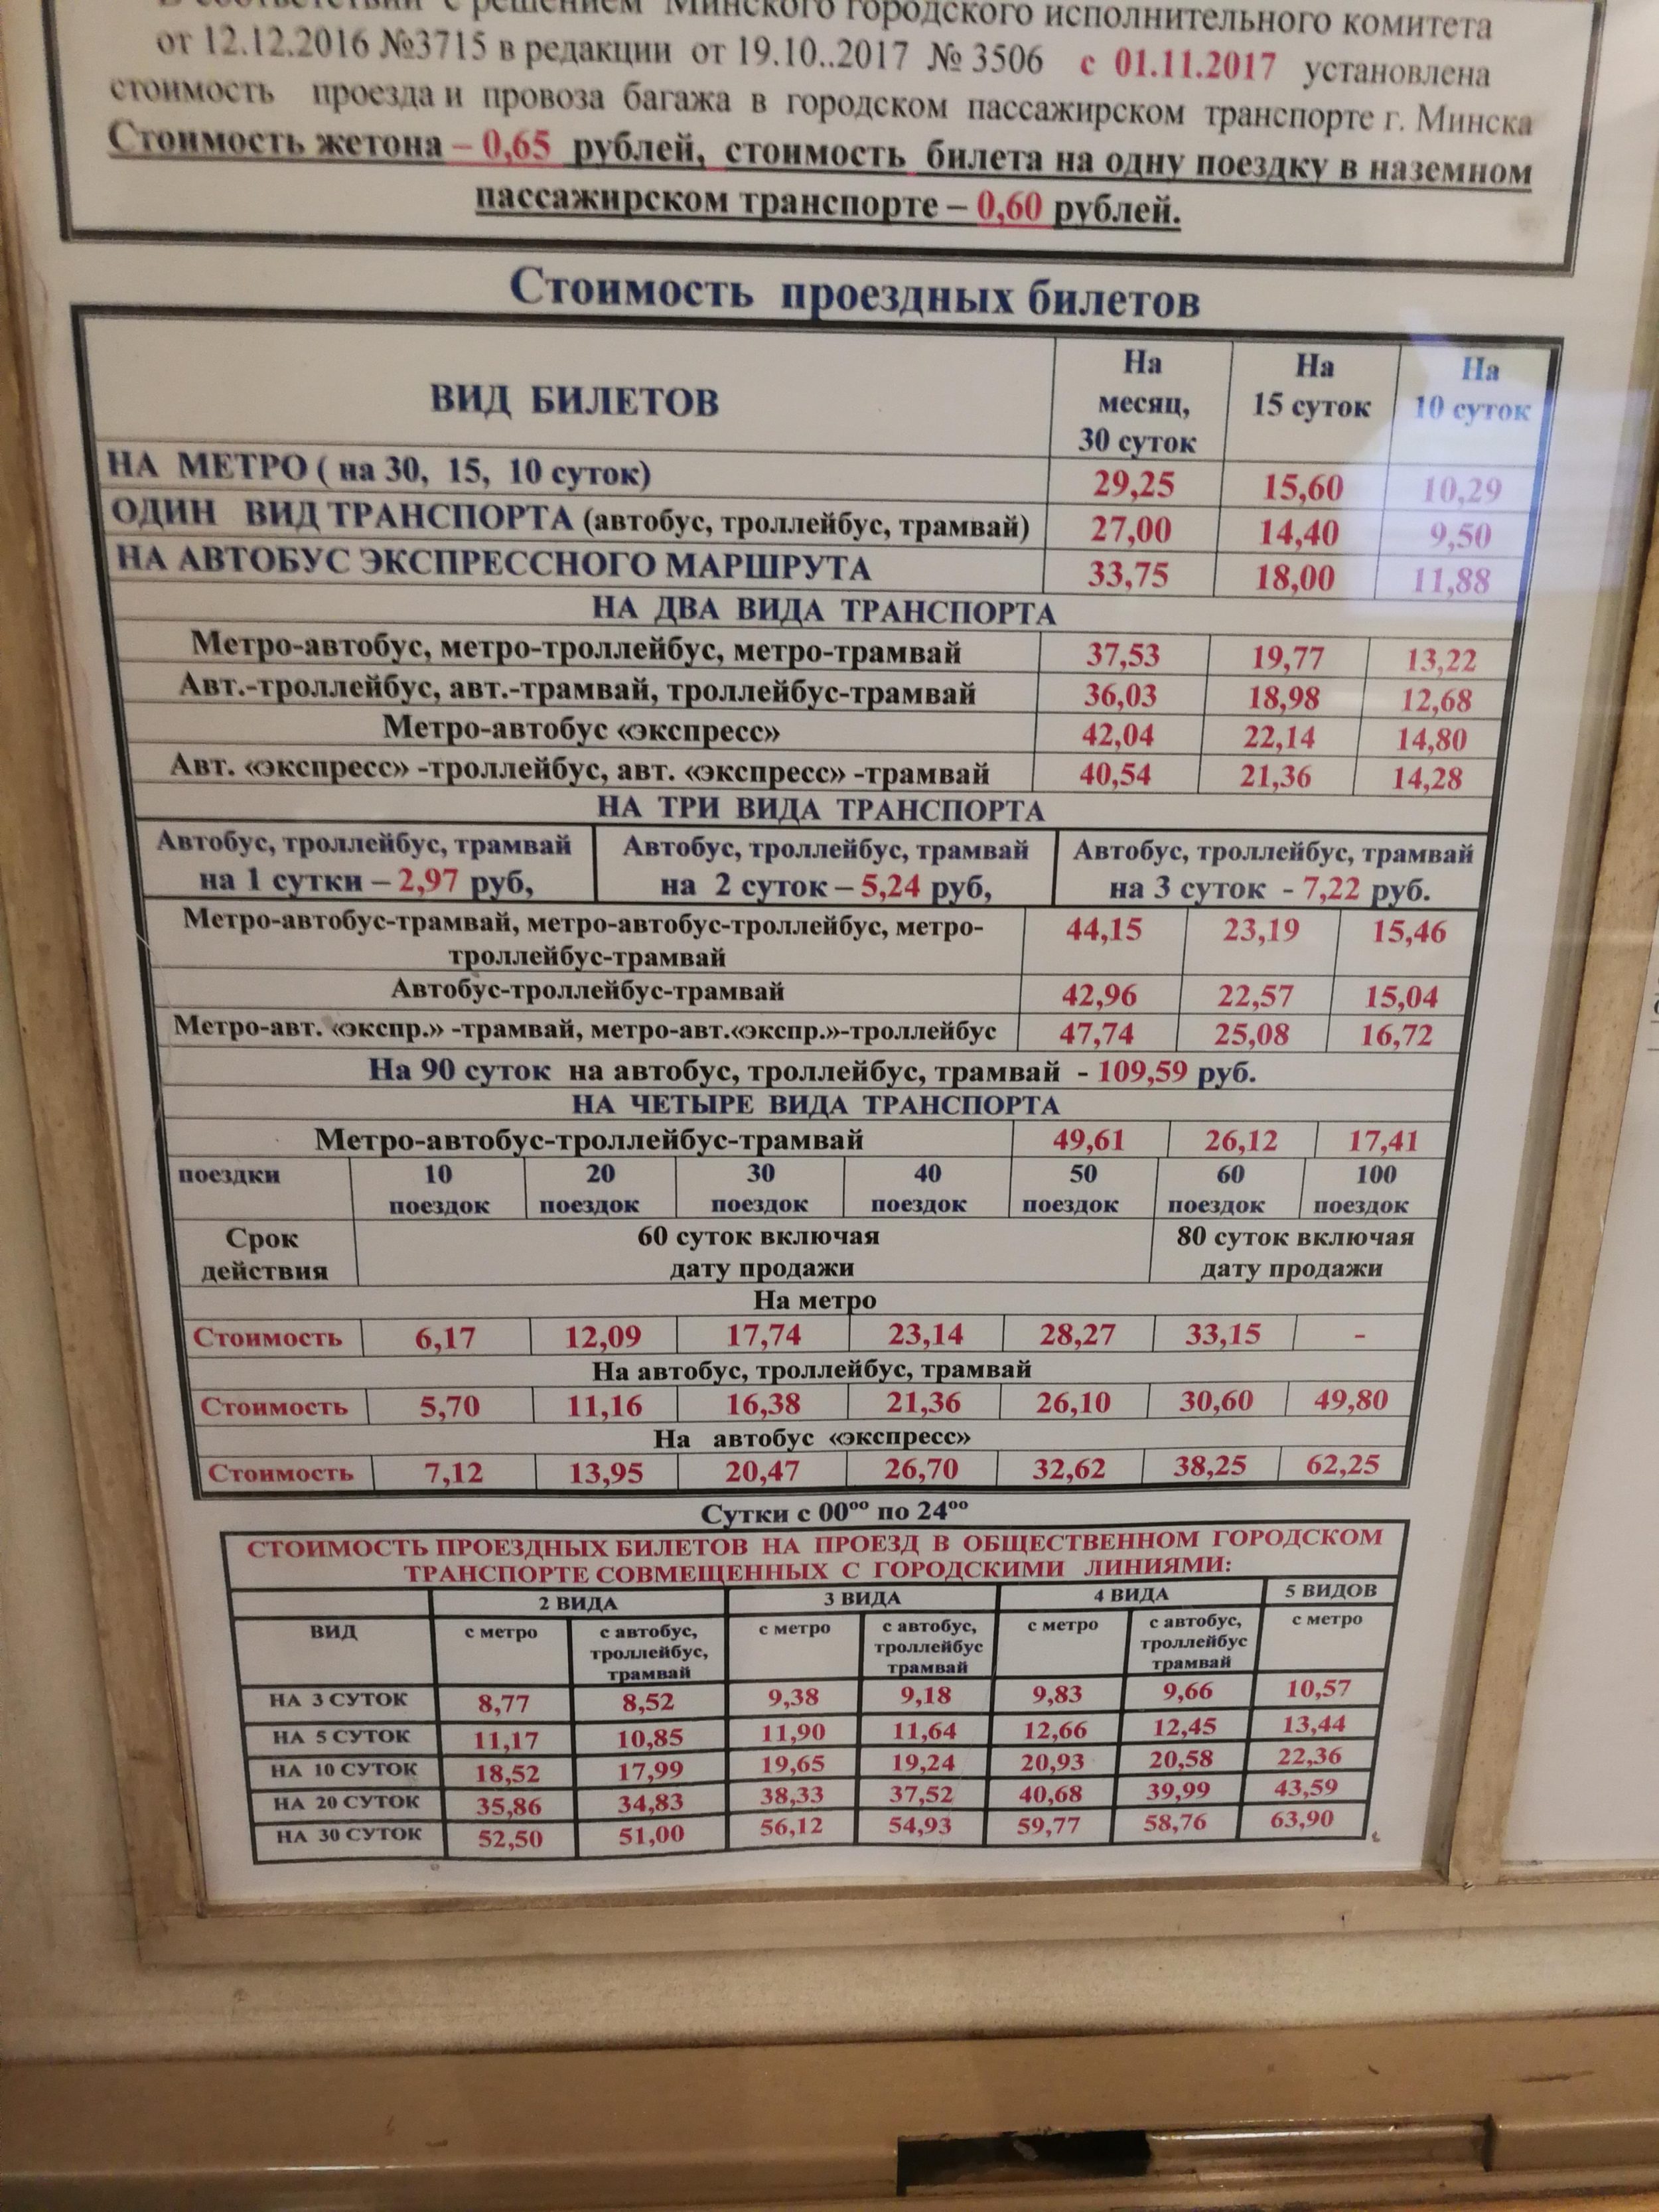 В соответствии с решением Минского городского исполнительного комитета
от 12.12.2016 №3715 в редакции от 19.10..2017 № 3506 с 01.11.2017 установлена
стоимость проезда и провоза багажа в городском пассажирском транспорте г. Минска
Стоимость жетона – 0,65 рублей, стоимость билета на одну поездку в наземном
пассажирском транспорте – 0,60 рублей.
Стоимость проездных билетов
ВИД БИЛЕТОВ
На месяц, 30 суток
На 15 суток
На 10 суток
НА МЕТРО ( на 30, 15, 10 суток) 29,25 15,60 10,29
ОДИН ВИД ТРАНСПОРТА (автобус, троллейбус, трамвай) 27,00 14,40 9,50
НА АВТОБУС ЭКСПРЕССНОГО МАРШРУТА 33,75 18,00 11,88
НА ДВА ВИДА ТРАНСПОРТА
Метро-автобус, метро-троллейбус, метро-трамвай 37,53 19,77 13,22
Авт.-троллейбус, авт.-трамвай, троллейбус-трамвай 36,03 18,98 12,68
Метро-автобус «экспресс» 42,04 22,14 14,80
Авт. «экспресс» -троллейбус, авт. «экспресс» -трамвай 40,54 21,36 14,28
НА ТРИ ВИДА ТРАНСПОРТА
Автобус, троллейбус, трамвай
на 1 сутки – 2,97 руб,
Автобус, троллейбус, трамвай
на 2 суток – 5,24 руб,
Автобус, троллейбус, трамвай
на 3 суток - 7,22 руб.
Метро-автобус-трамвай, метро-автобус-троллейбус, метро-
троллейбус-трамвай 44,15 23,19 15,46
Автобус-троллейбус-трамвай 42,96 22,57 15,04
Метро-авт. «экспр.» -трамвай, метро-авт.«экспр.»-троллейбус 47,74 25,08 16,72
На 90 суток на автобус, троллейбус, трамвай - 109,59 руб.
НА ЧЕТЫРЕ ВИДА ТРАНСПОРТА
Метро-автобус-троллейбус-трамвай 49,61 26,12 17,41
поездки 10 20 30 40 50 60 100
поездок поездок поездок поездок поездок поездок поездок
Срок 60 суток включая 80 суток включая
действия дату продажи дату продажи
На метро
Стоимость 6,17 12,09 17,74 23,14 28,27 33,15 -
На автобус, троллейбус, трамвай
Стоимость 5,70 11,16 16,38 21,36 26,10 30,60 49,80
На автобус «экспресс»
Стоимость 7,12 13,95 20,47 26,70 32,62 38,25 62,25
Сутки с 00⁰⁰ по 24⁰⁰
СТОИМОСТЬ ПРОЕЗДНЫХ БИЛЕТОВ НА ПРОЕЗД В ОБЩЕСТВЕННОМ ГОРОДСКОМ
ТРАНСПОРТЕ СОВМЕЩЕННЫХ С ГОРОДСКИМИ ЛИНИЯМИ:
2 ВИДА 3 ВИДА 4 ВИДА 5 ВИДОВ
ВИД
с метро
с автобус,
троллейбус,
трамвай
с метро
с автобус,
троллейбус
трамвай
с метро
с автобус,
троллейбус
трамвай
с метро
НА 3 СУТОК 8,77 8,52 9,38 9,18 9,83 9,66 10,57
НА 5 СУТОК 11,17 10,85 11,90 11,64 12,66 12,45 13,44
НА 10 СУТОК 18,52 17,99 19,65 19,24 20,93 20,58 22,36
НА 20 СУТОК 35,86 34,83 38,33 37,52 40,68 39,99 43,59
НА 30 СУТОК 52,50 51,00 56,12 54,93 59,77 58,76 63,90